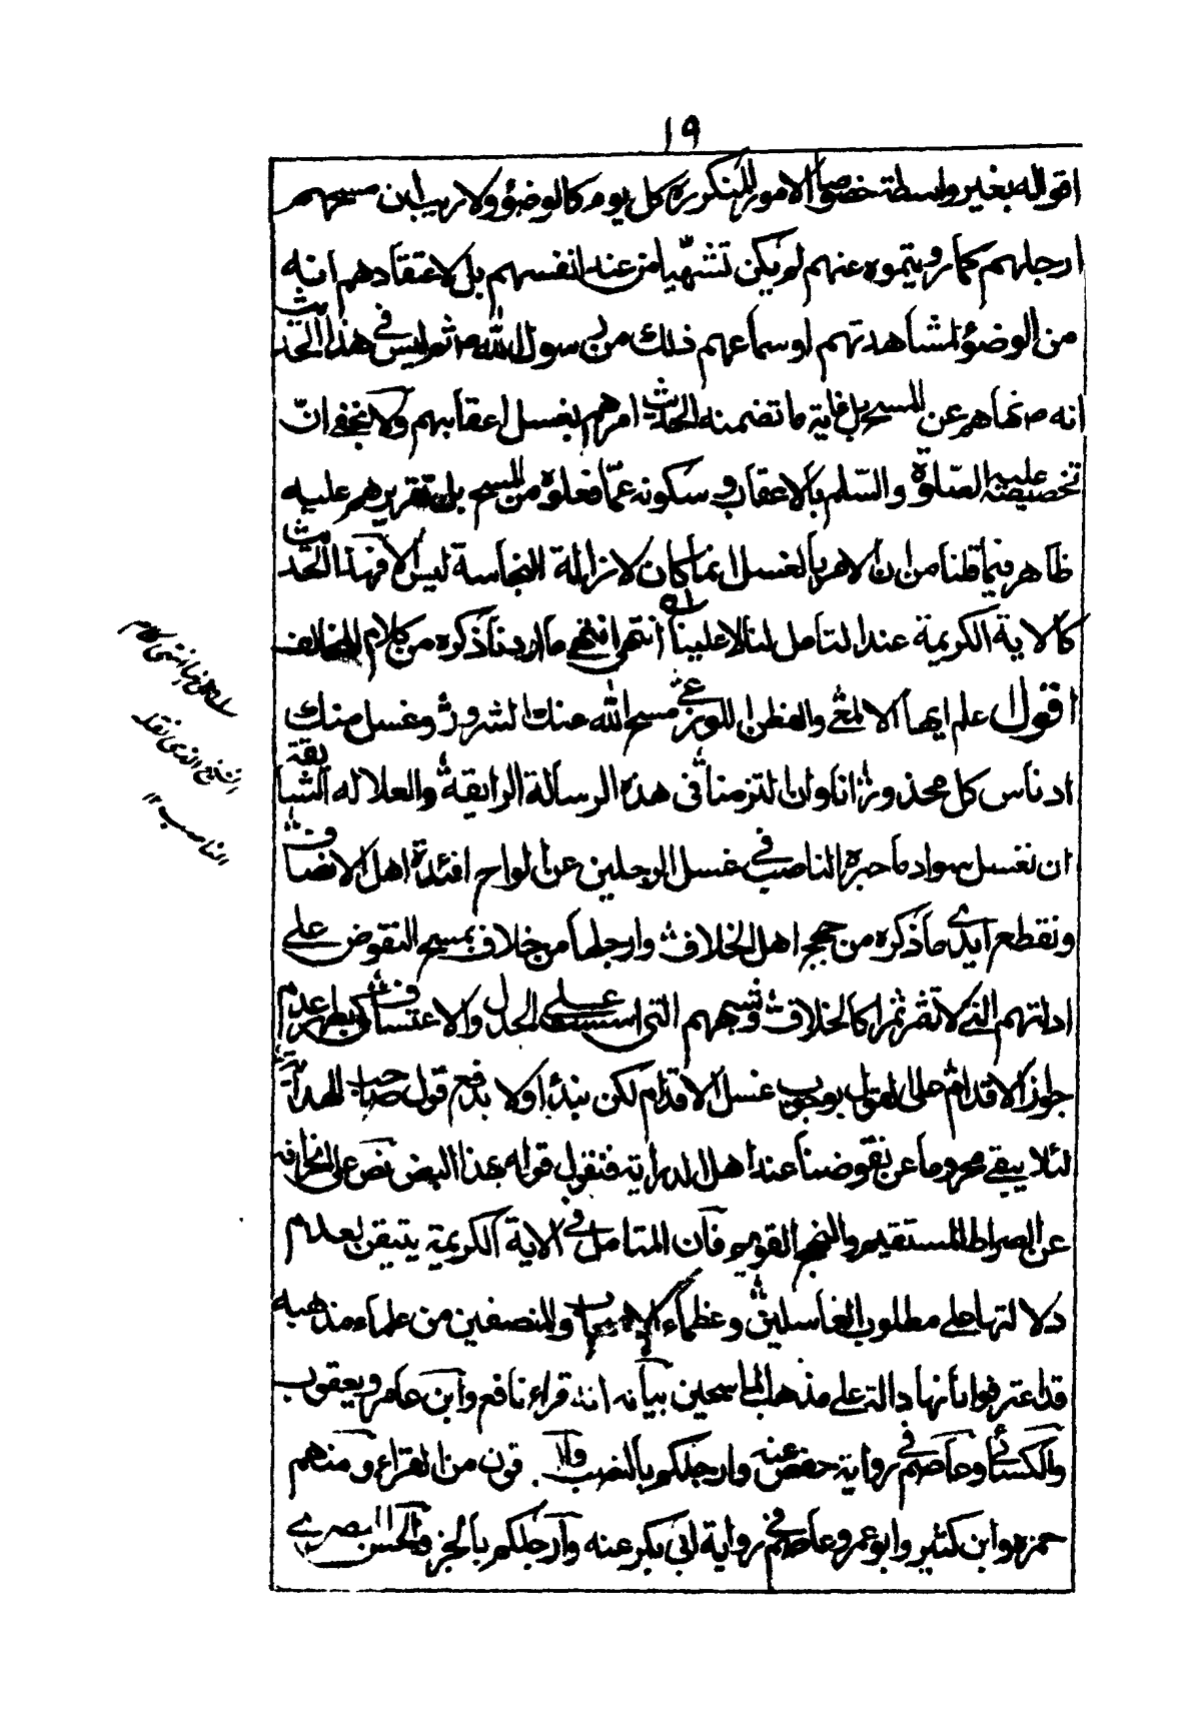 ١٩
اقواله بغير واسطة خصوصا الامور المتكررة كل يوم كالوضؤ ولا ريب ان مسحهم
ارجلهم كما رويتموه عنهم لم يكن تشهيا من عند انفسهم بل لاعتقادهم انه
من الوضؤ لمشاهدتهم او سماعهم ذلك من رسول الله ص ثم ليس في هذا الحديث
انه ص نهاهم عن المسح بل غاية ما تضمنه الحديث امرهم بغسل اعقابهم ولا يخفى انّ
تخصيصه عليه الصّلوة والسّلم بالاعقاب وسكوته عمّا فعلوه من المسح بل تقريرهم عليه
ظاهر فيما قلنا من ان الامر بالغسل انما كان لازالة النجاسة ليس الا فهذا الحديث
كالاية الكريمة عند التامل لنا لا علينا انتهى ما اردنا ذكره من كلام المخالف
اقول اعلم ايها الالمعي والفطن اللوزعي مسح الله عنك الشرور وغسل منك
ادناس كل محذور انا وان التزمنا في هذه الرسالة الرايقة والعلاله الشايقة
ان نغسل سواد ما حبره الناصب في غسل الرجلين عن الواح افئدة اهل الانصاف
ونقطع ايدي ما ذكره من حجج اهل الخلاف وارجلها من خلاف بمسح النقوض على
ادلتهم التي لا تثمر ثمرا كالخلاف وشبههم التي اسست على الجدل والاعتساف ليظهر عدم
جواز الاقدام على القول بوجوب غسل الاقدام لكن نبدأ اولا بدفع قول صاحب الهداية
لئلا يبقى محروما عن نقوضنا عند اهل الدراية فنقول قوله بهذا البعض نص على انحرافه
عن الصراط المستقيم والنهج القويم فان المتامل في الاية الكريمة يتيقن بعدم
دلالتها على مطلوب الغاسلين وعظماء والمنصفين من علماء مذهبه
قد اعترفوا بانها دالة على مذهب الماسحين بيانه انه قراء نافع وابن عامر ويعقوب
والكسائي وعاصم في رواية حفص عنه وارجلكم بالنصب قون من القراء ومنهم
حمزه وابن كثير وابو عمرو وعاصم في رواية ابي بكر عنه وارجلكم بالجر والحسن البصري
انتهى كلام
الشيخ الذي نقله
الناصب ١٢